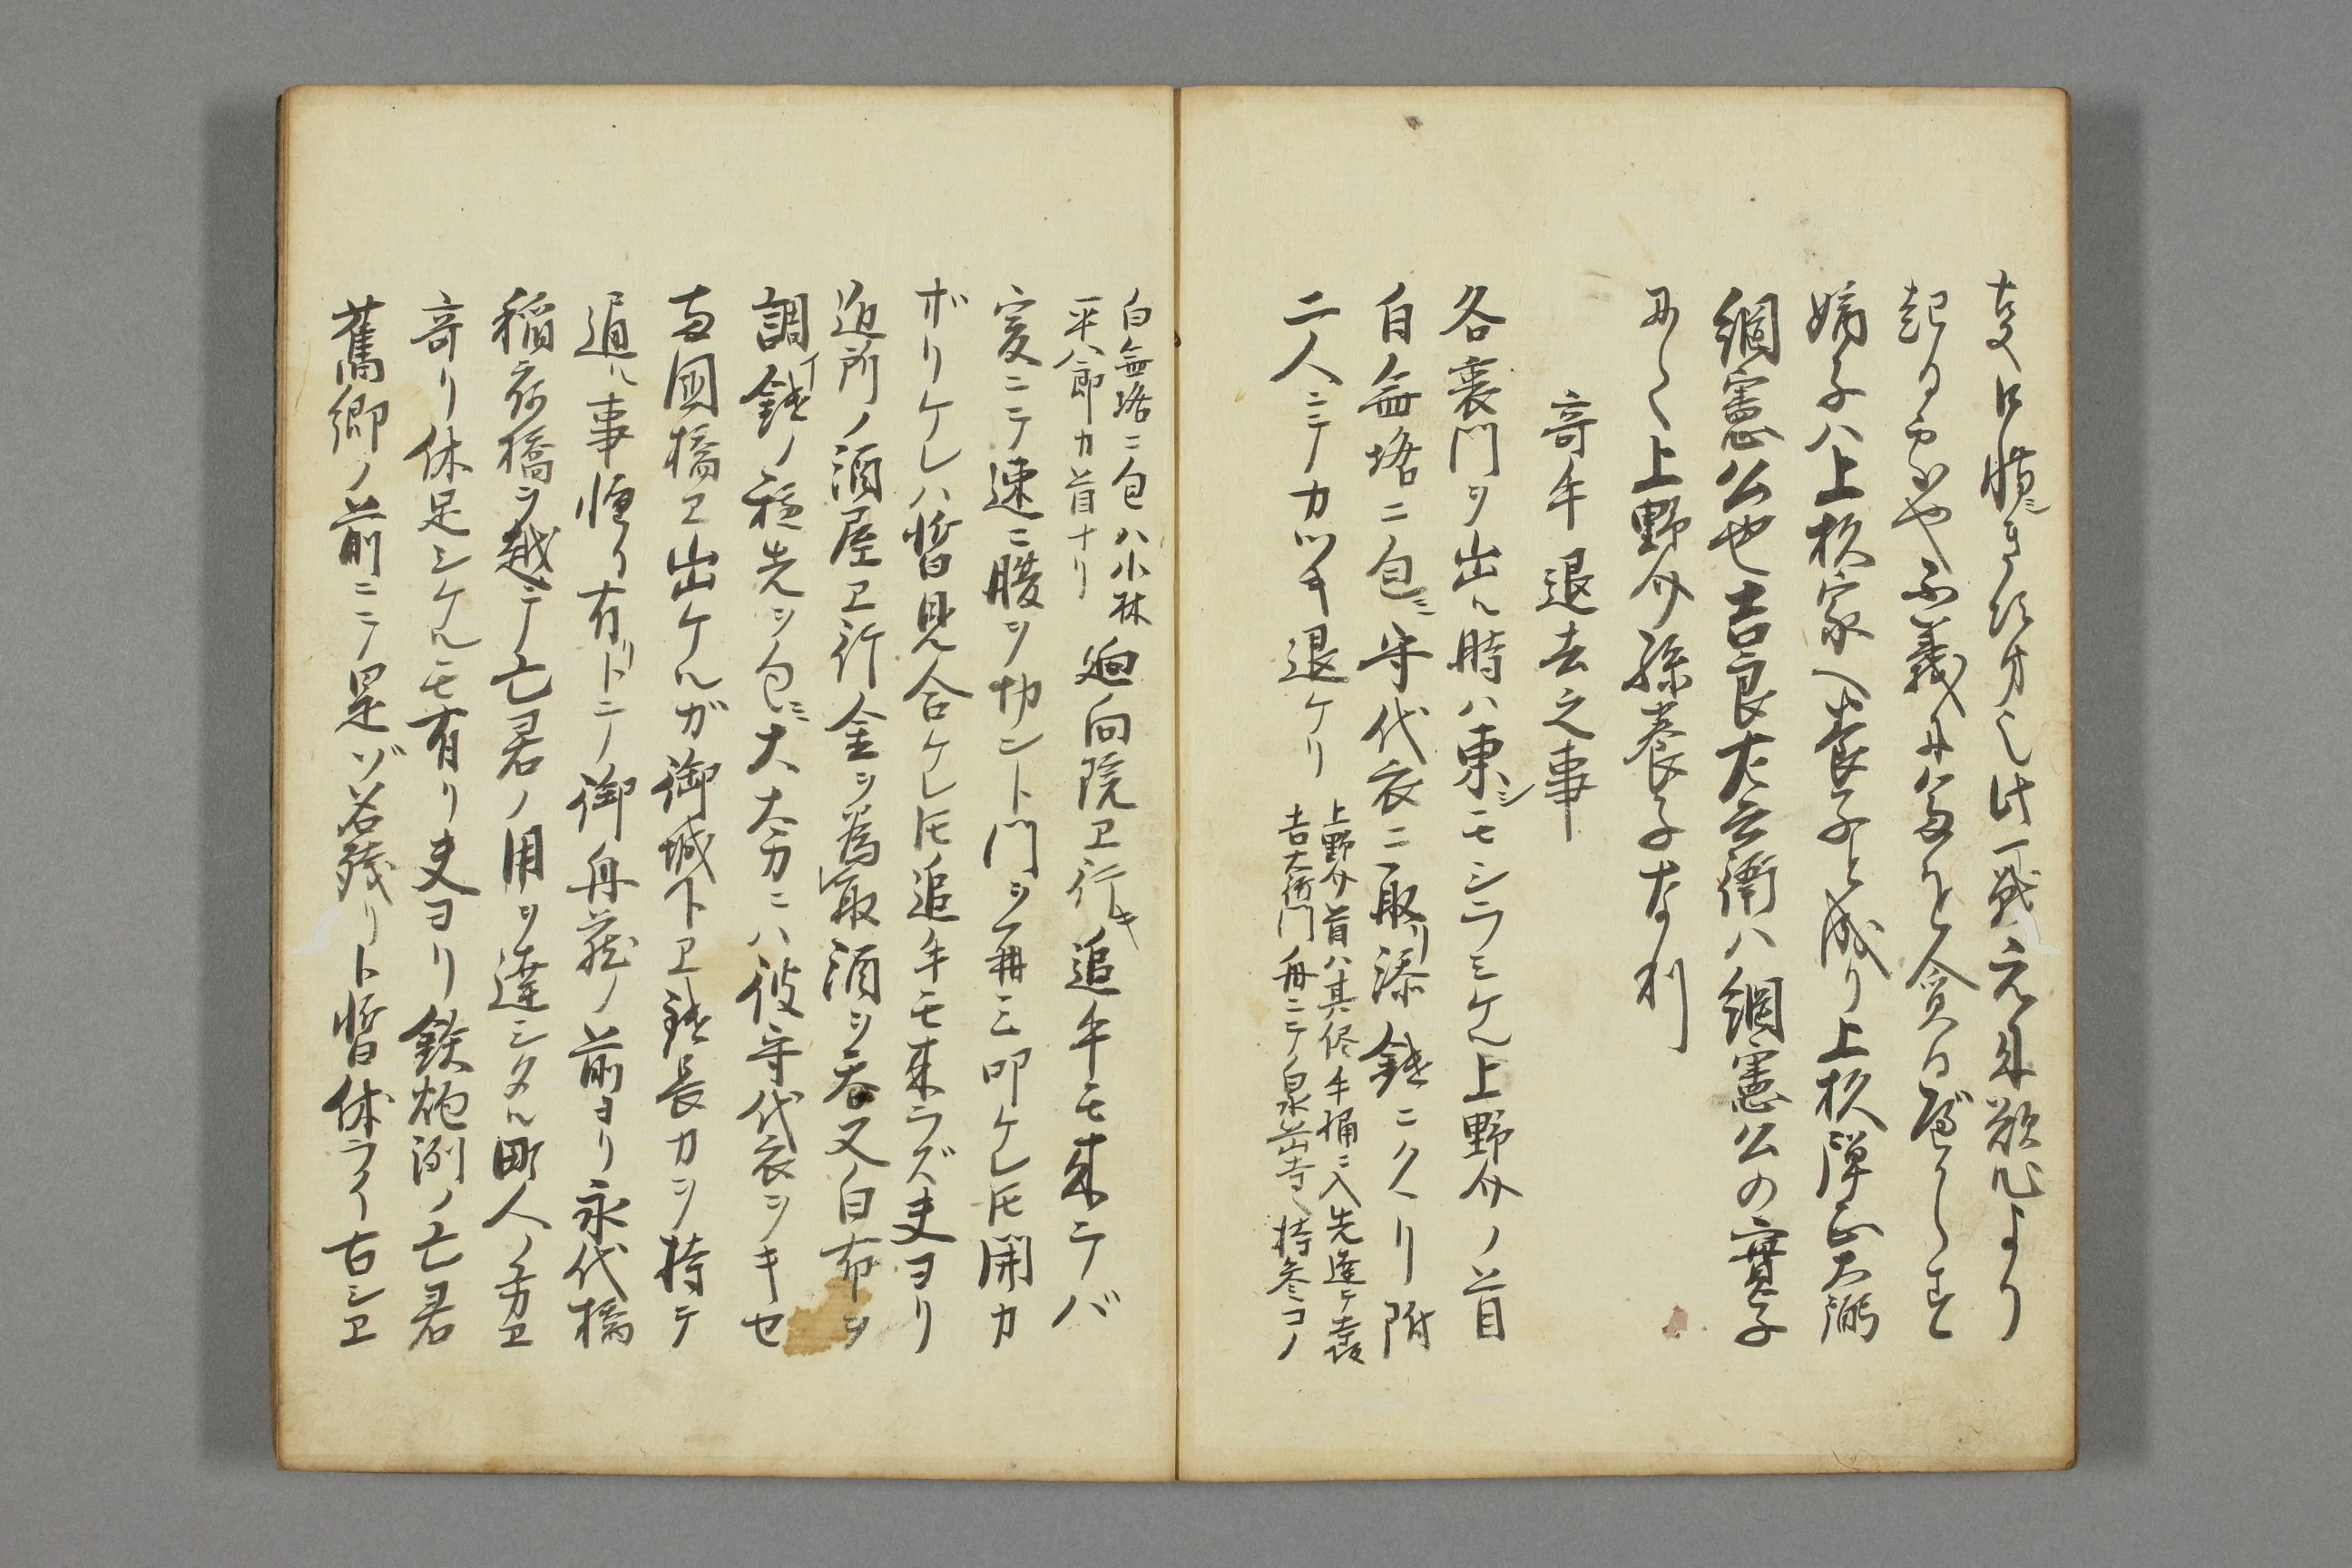 起る 不義 貪
嫡子ハ上杦家へ養子と成り上杦弾正大弼
綱憲公也吉良左兵衛ハ綱憲公の實子
上野介孫養子な利
寄手退去之事
各裏門ヲ出ル時ハ東シモシラミケル上野介ノ首
白無垢ニ包ミ守代衣ニ取リ添鑓ニクヽリ附
二人ニテカツキ退ケリ
上野介首ハ其侭手桶ニ入先達テ寺坂
吉右衛門舟ニテ泉岳寺ヘ持参コノ
白無垢ニ包ハ小林
平八郎カ首ナリ
廻向院エ行キ追手モ来ラバ
爰ニテ速ニ腹ヲ切ント門ヲ再三叩ケレ𪜈開カ
ザリケレハ暫見合ケレ𪜈追手モ来ラズ夫ヨリ
近所ノ酒屋エ行金ヲ為取酒ヲ呑又白布ヲ
調イ鑓ノ穂先ヲ包ミ大太刀ニハ彼守代衣ヲキセ
両國橋エ出ケルガ御城下エ鑓長刀ヲ持テ
通ル事憚リ有リトテ御舟蔵ノ前ヨリ永代橋
稲荷橋ヲ越テ亡君ノ用ヲ達シタル町人ノ方エ
寄リ休足シケルモ有リ夫ヨリ鉄炮洲ノ亡君
舊郷ノ前ニテ是ゾ名残リト暫休ライ古シエ